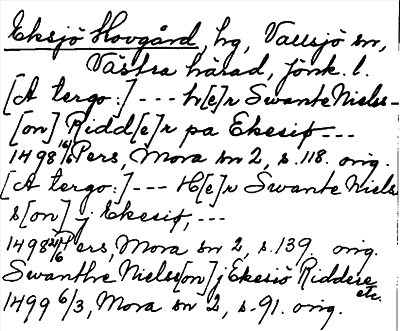 Eksjö Hovgård, hg, Vallsjö sn,
Västra härad, Jönk. l.
[A tergo:] --- h[e]r Swante Niels-
[on] Ridd[e]r pa Ekesiø ---
1498 16/6 Pers, Mora sn 2, s. 118. orig.
[A tergo:] --- H[e]r Swante Niels
s[on] j Ekesiø, ---
1498 Pers, Mora sn 2, s. 139, orig.
Swanthe Niels[on] j Ekesiö Riddere etc.
1499 6/3, Mora sn 2, s. 91. orig.